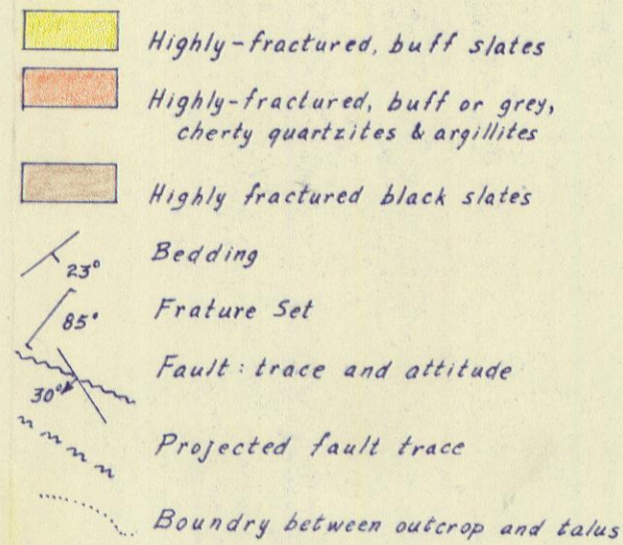 Highly-fractured, buff slates
Highly-fractured, buff or grey,
cherty quartzites & argillites
Highly fractured black slates
23°
Bedding
85°
Frature Set
Fault: trace and attitude
30°
Projected fault trace
Boundry between outcrop and talus